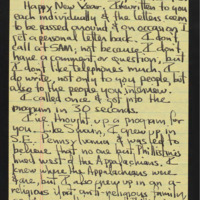 Happy New Year. I've written to you
each individually & the letters seem
to be passed around & on occasion I
get a personal letter back. I don't
call at 5AM, not because I don't
have a comment or question, but
I don't like telephones much. I
do write, not only to you people, but
also to the people you interview.
I called once & got into the
program in 30 seconds.
I've thought up a program for
you. Like Susan, I grew up in
Pennsylvania & was led to
believe that no one but Philistines
lived west of the Appalachians. I
knew where the Appalachians were
but I also grew up in an
religious (not anti-religious) family,